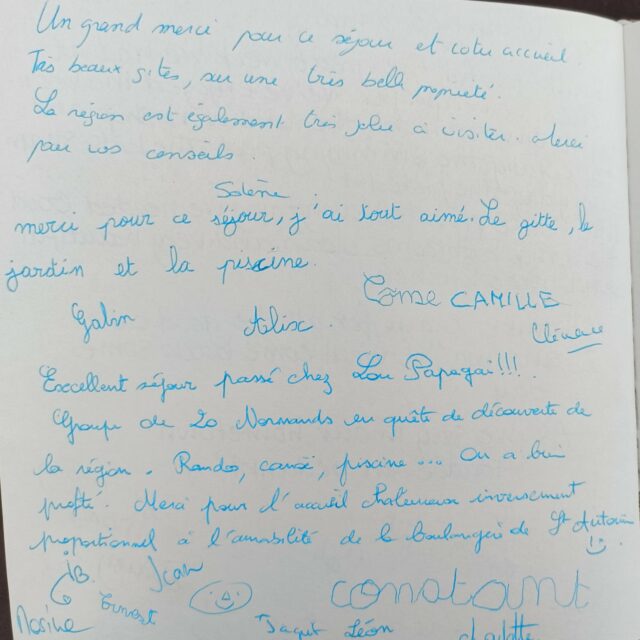 Un grand merci pour ce séjour et votre accueil.
Très beaux gites, sur une très belle propriété.
La région est également très jolie à visiter. Merci
pour vos conseils.
Solène.
merci pour ce séjour, j'ai tout aimé. Le gitte, le
jardin et la piscine.
Come CAMILLE
Gabin Alix. Clémence
Excellent séjour passé chez Lou Papegai!!!.
Groupe de 20 Normands en quête de découverte de
la région. Rando, canoë, piscine... On a bien
profité. Merci pour l'accueil chaleureux inversement
proportionnel à l'amabilité de la boulangerie de St Antonin
JB. Jean constant
Rosine Ernest
Léon